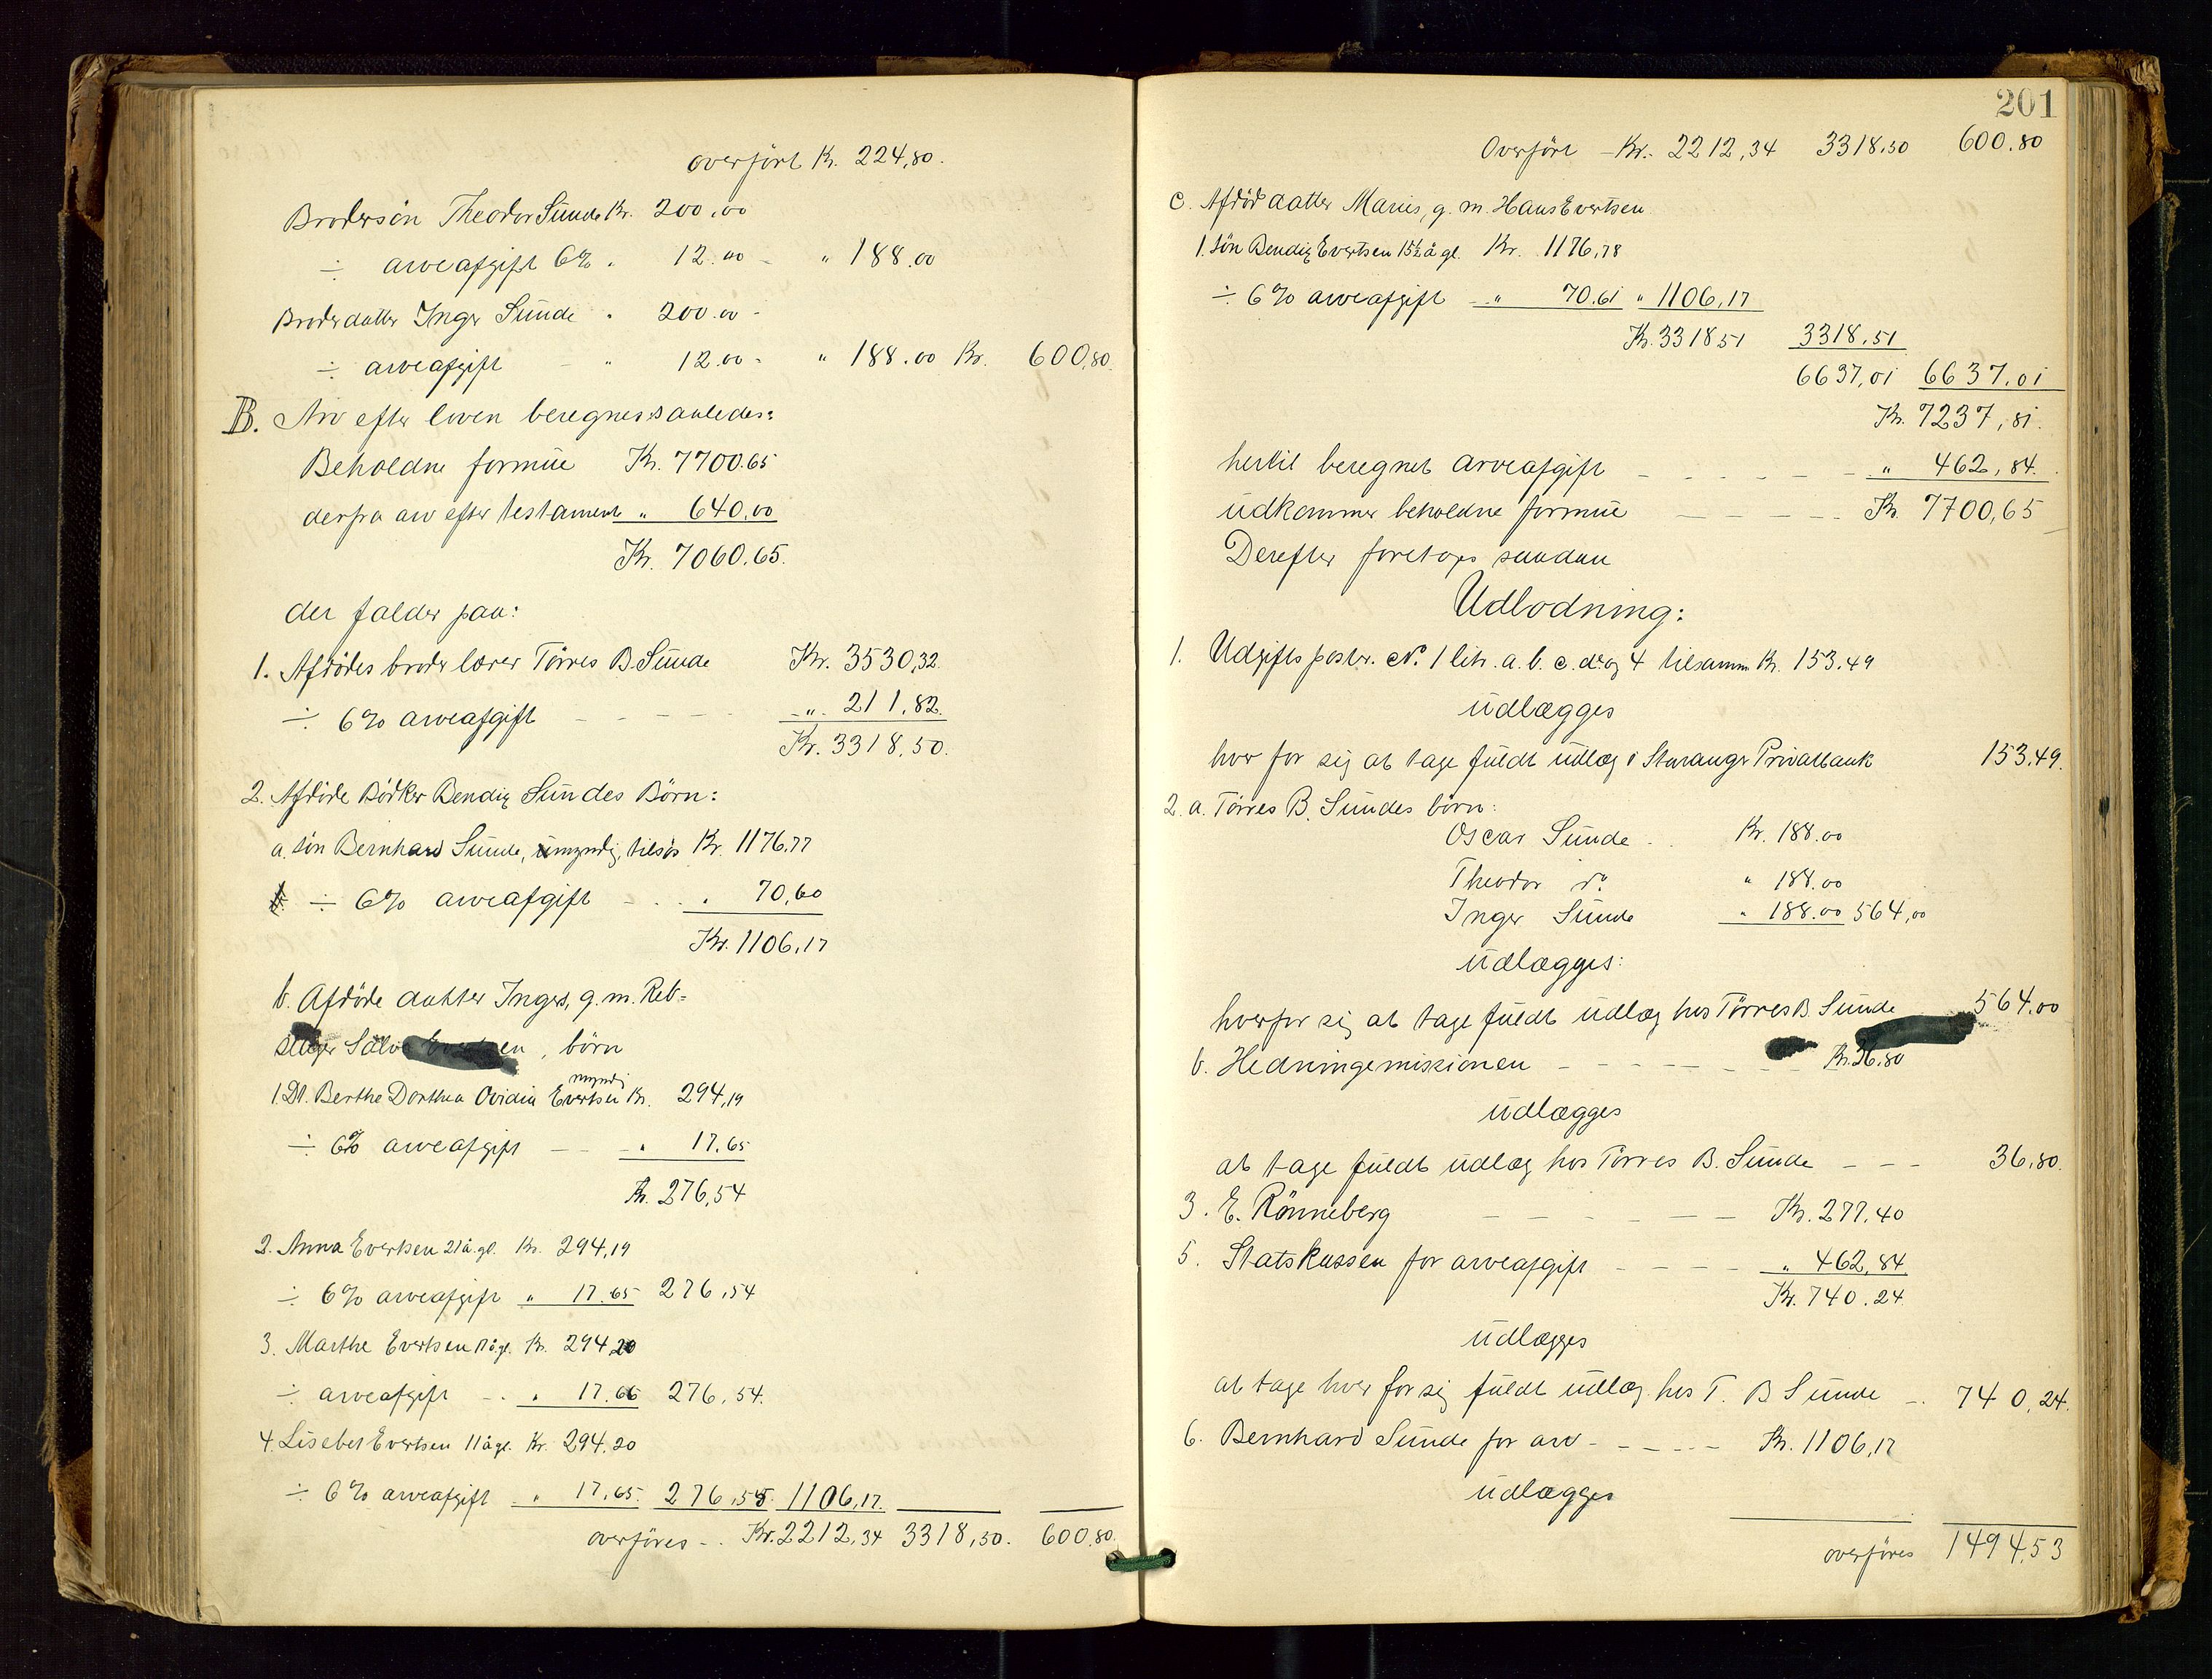 overført Kr. 224,80.
Brodersøn Theodor Sunde Kr. 200,00
÷ arveafgift 6% " 12.00 - " 188.00
Broderdatter Inger Sunde " 200.00 -
÷ arveafgift - " 12.00 - " 188.00 Kr. 600,80.
B. Arv efter loven beregnes saaledes:
Beholdne formue Kr. 7700.65
derfra arv efter testament " 640,00
Kr. 7060.65.
der falder paa:
1. Afdødes broder lærer Tørres B. Sunde Kr. 3530,32.
÷ 6% arveafgift - - - - " 211,82.
Kr. 3318,50.
2. Afdøde Bødker Bendix Sundes Børn:
a. søn Bernhard Sunde, umyndig, tilsjøs Kr. 1176,77
÷ 6% arveafgift - - " 70,60
Kr. 1106,17
b. Afdøde datter Inger, g. m. Reb-
slager Sølve Evertsen, børn
myndig
1. Dt. Berthe Dorthea Ovidia Evertsen Kr. 294,19
÷ 6% arveafgift - - " 17.65
Kr. 276,54
2. Anna Evertsen 21 å. gl. Kr. 294,19
÷ 6% arveafgift " 17.65 276,54
3. Marthe Evertsen 17 å. gl. Kr. 294,20
÷ arveafgift - " 17.66 276,54.
4. Lisebet Evertsen 11 å gl. Kr. 294.20
÷ 6% arveafgift " 17,65. 276,55 1106,17.
overføres - . Kr. 2212,34 3318,50. 600,80.
201
Overført - Kr. 2212,34 3318,50 600.80
c. Afdød datter Maries, g. m. Hans Evertsen
1. Søn Bendix Evertsen 15½ å gl. Kr. 1176,78
÷ 6% arveafgift - " 70.61 " 1106,17
Kr. 3318 51 3318,51
6637,01 6637.01
Kr. 7237,81.
hertil beregnet arveafgift - - - - - " 462,84.
udkommer beholdne formue - - - - Kr. 7700,65
Derefter foretoges saadan
Udlodning:
1. Udgiftsposter. No. 1 litr. a. b. c. d. og 4 tilsamm. Kr. 153.49
udlægges
hver for sig at tage fuldt udlæg i Stavanger Privatbank 153.49.
2. a. Tørres B. Sundes børn:
Oscar Sunde - . Kr. 188.00
Theodor do. " 188.00
Inger Sunde " 188.00 564,00
udlægges:
hver for sig at tage fuldt udlæg hos Tørres B. Sunde 564.00
b. Hedningemissionen - - - - - - Kr. 36,80
udlægges
at tage fuldt udlæg hos Tørres B. Sunde - - - 36,80.
3. E. Rønneberg - - - - - - Kr. 277.40
5. Statskassen for arveafgift - - - - " 462,84
Kr. 740.24
udlægges
at tage hver for sig fuldt udlæg hos T. B Sunde - . 740,24.
6. Bernhard Sunde for arv - - - - - Kr. 1106,17
udlægges
overføres 1494,53